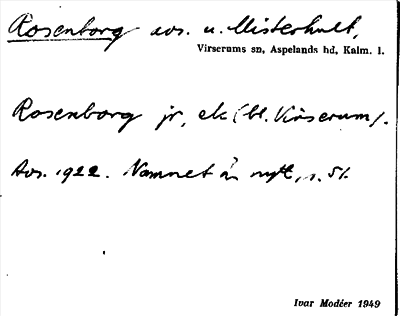 Rosenborg avs. u. Misterhult,
Virserums sn, Aspelands hd, Kalm. l.
Rosenborg jr, ek (bl. Virserum).
Avs. 1922. Namnet är nytt, s. 51.
Ivar Modéer 1949